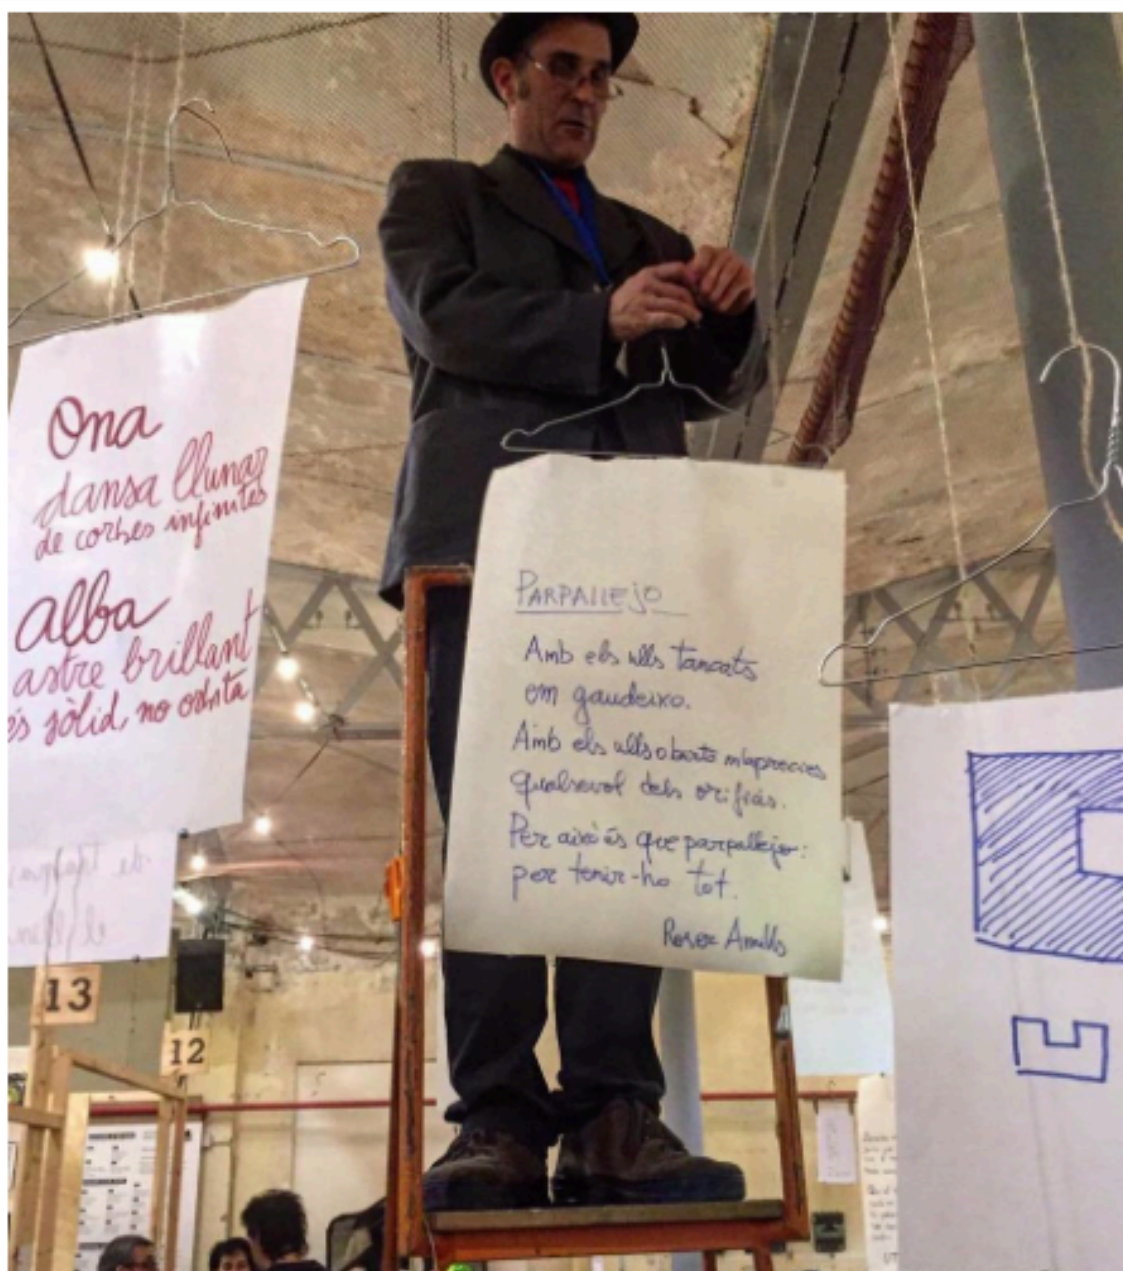 Ona
dansa llunar
de corbes infinites
alba
astre brillant
és sòlid, no orbita
PARPALLEJO
Amb els ulls tancats
em gaudeixo.
Amb els ulls oberts m'aprecies
qualsevol dels orificis.
Per això és que parpallejo:
per tenir-ho tot.
Roser Amills
13
12